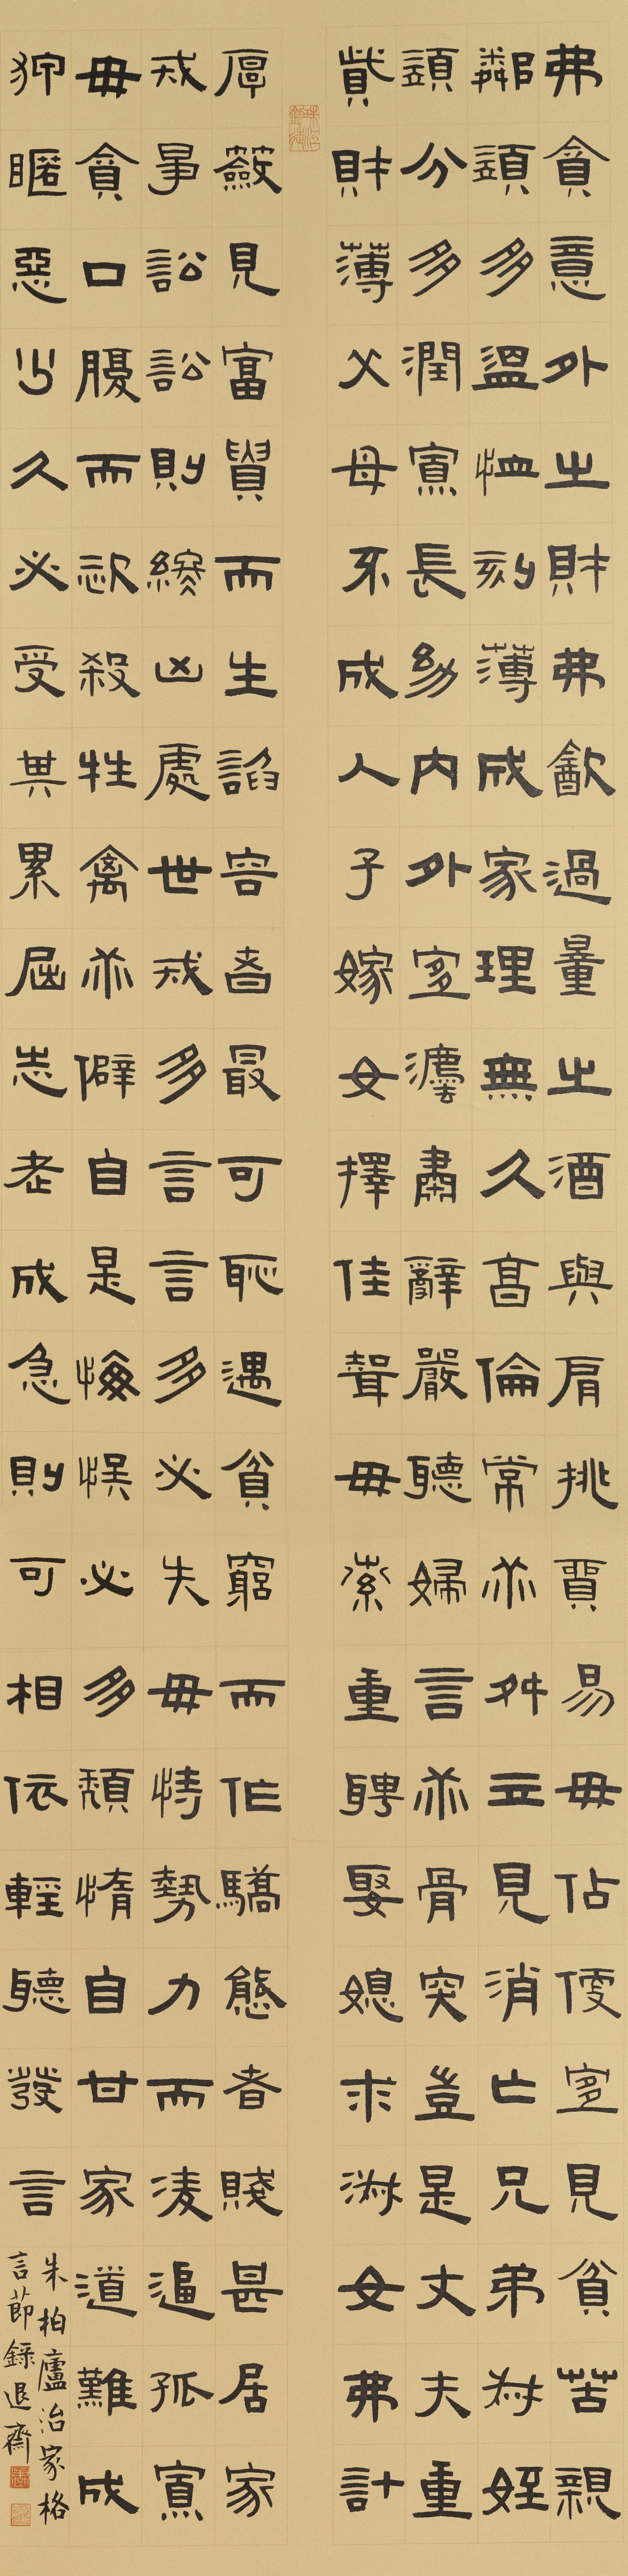 弗貪意外之財弗飲過量之酒與肩挑貿易毋佔便宜見貧苦親
鄰須多溫恤刻薄成家理無久享倫常乖舛立見消亡兄弟叔姪
須分多潤寡長幼內外宜灋肅辭嚴聽婦言乖骨肉豈是丈夫重
貲財薄父母不成人子嫁女擇佳聟毋索重聘娶媳求淑女弗計
厚籢見富貴而生諂容者最可恥遇貧窮而作驕態者賤甚居家
戒爭訟訟則終凶處世戒多言言多必失毋恃勢力而凌逼孤寡
毋貪口腹而恣殺牲禽乖僻自是悔誤必多頹惰自甘家道難成
狎暱惡少久必受其累屈志老成急則可相依輕聽發言
朱柏廬治家格
言節錄退齋